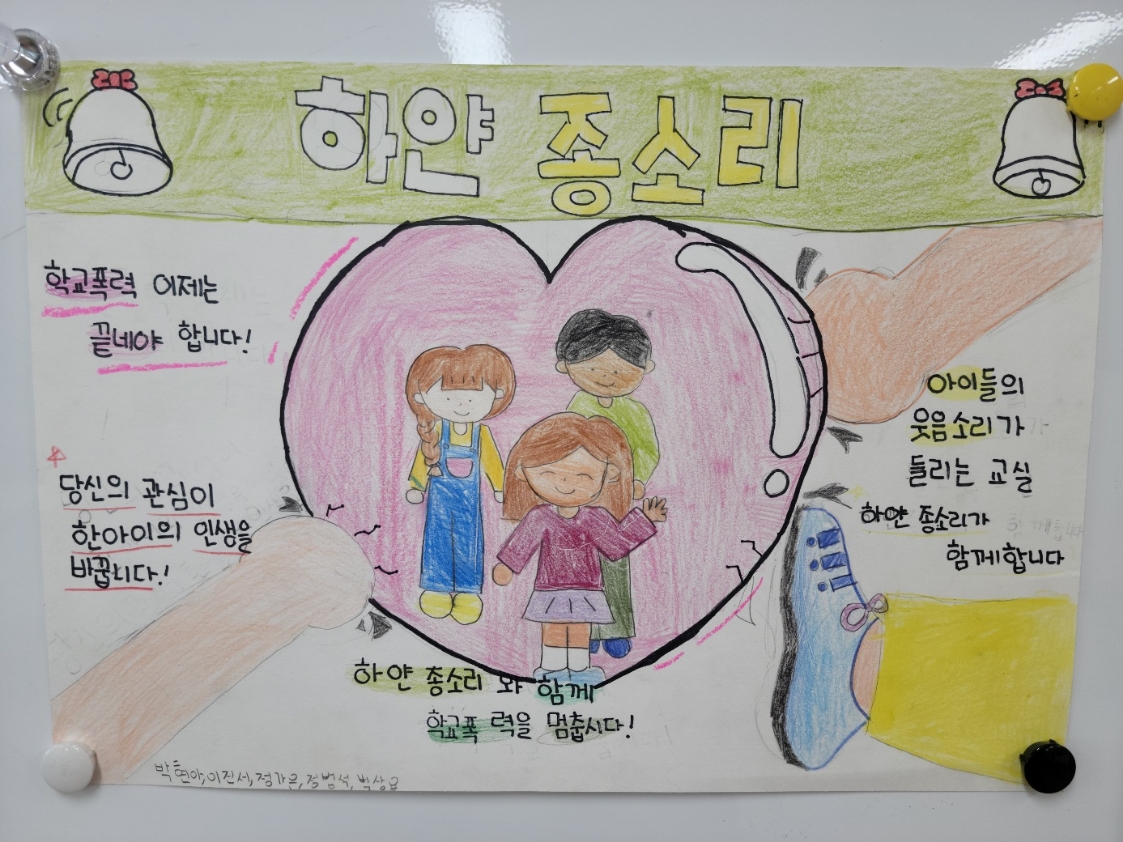 하얀 종소리
학교폭력 이제는
끝네야 합니다!
당신의 관심이
한아이의 인생을
바꿉니다!
아이들의
웃음소리가
들리는 교실
하얀 종소리가
함께합니다
하얀 종소리 와 함께
학교폭 력을 멈춥시다!
박현아, 이진서, 정가은, 정범석,